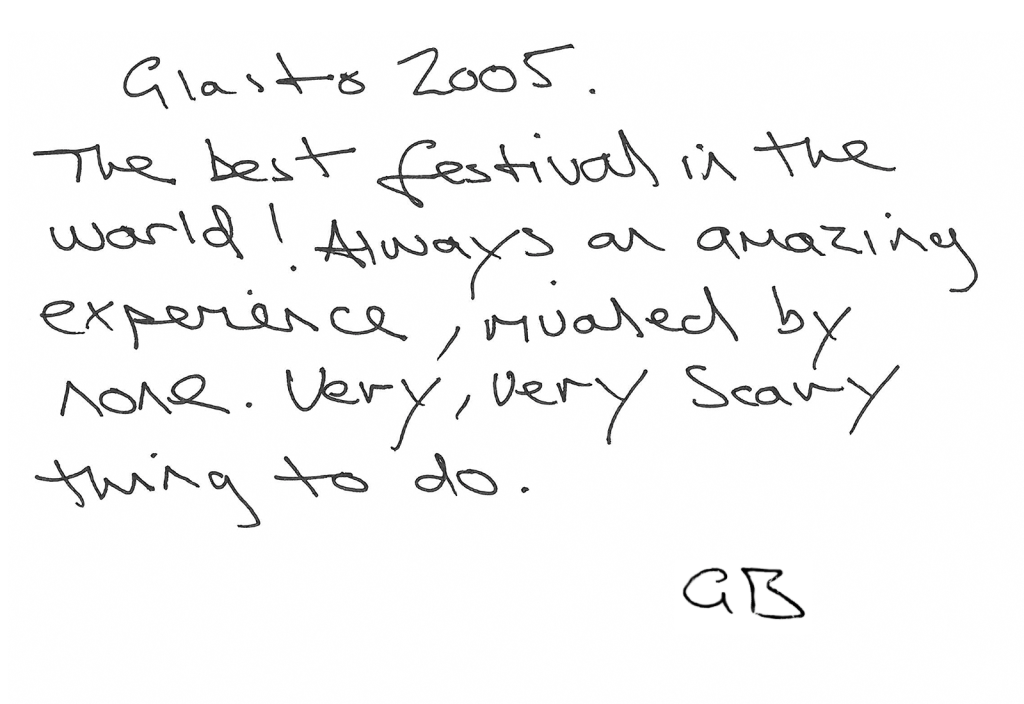 Glasto 2005.
The best festival in the
world! Always an amazing
experience, rivaled by
none. Very, very scary
thing to do.
GB